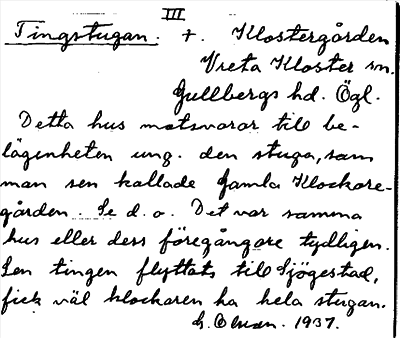 III
Tingstugan. +. Klostergården
Vreta Kloster sn.
Gullbergs hd. Ögl.
Detta hus motsvarar till be-
lägenheten ung. den stuga, som
man sen kallade Gamla Klockare-
gården. Se d. o. Det var samma
hus eller dess föregångare tydligen.
Sen tingen flyttats till Sjögestad,
fick väl klockaren ha hela stugan.
1937.